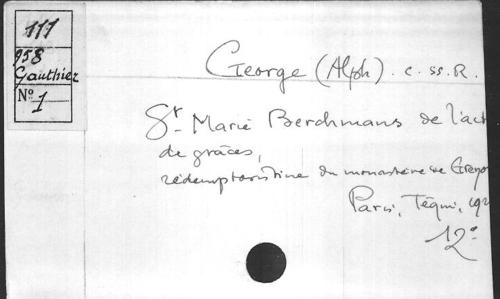 111
958
Gauthier
N° 1
George (Alph) . c. ss. R.
Sr Marie Berchmans de l'act
de grâces,
rédemptoristine du monastère de Greno
Paris, Téqui, 192
12°